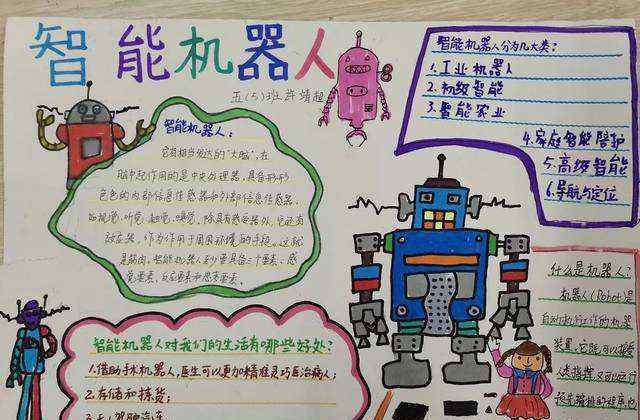 智能机器人
五(5)班 许靖桓
智能机器人:
它有相当发达的"大脑",在
脑中起作用的是中央处理器,具备形形
色色的内部信息传感器和外部信息传感器,
如视觉、听觉、触觉、嗅觉。除具有感受器外,它还有
效应器,作为作用于周围环境的手段。这就
是筋肉,智能机器人至少要具备三个要素:感
觉要素,反应要素和思考要素。
智能机器人分为几大类:
1.工业机器人
2.初级智能
3.智能农业
4.家庭智能陪护
5.高级智能
6.导航与定位
智能机器人对我们的生活有哪些好处?
1.借助手术机器人,医生可以更加精准灵巧医治病人;
2.存储和拣货;
什么是机器人?
机器人(Robot)是
自动执行工作的机器
装置。它既可以接受
人类指挥,又可以运行